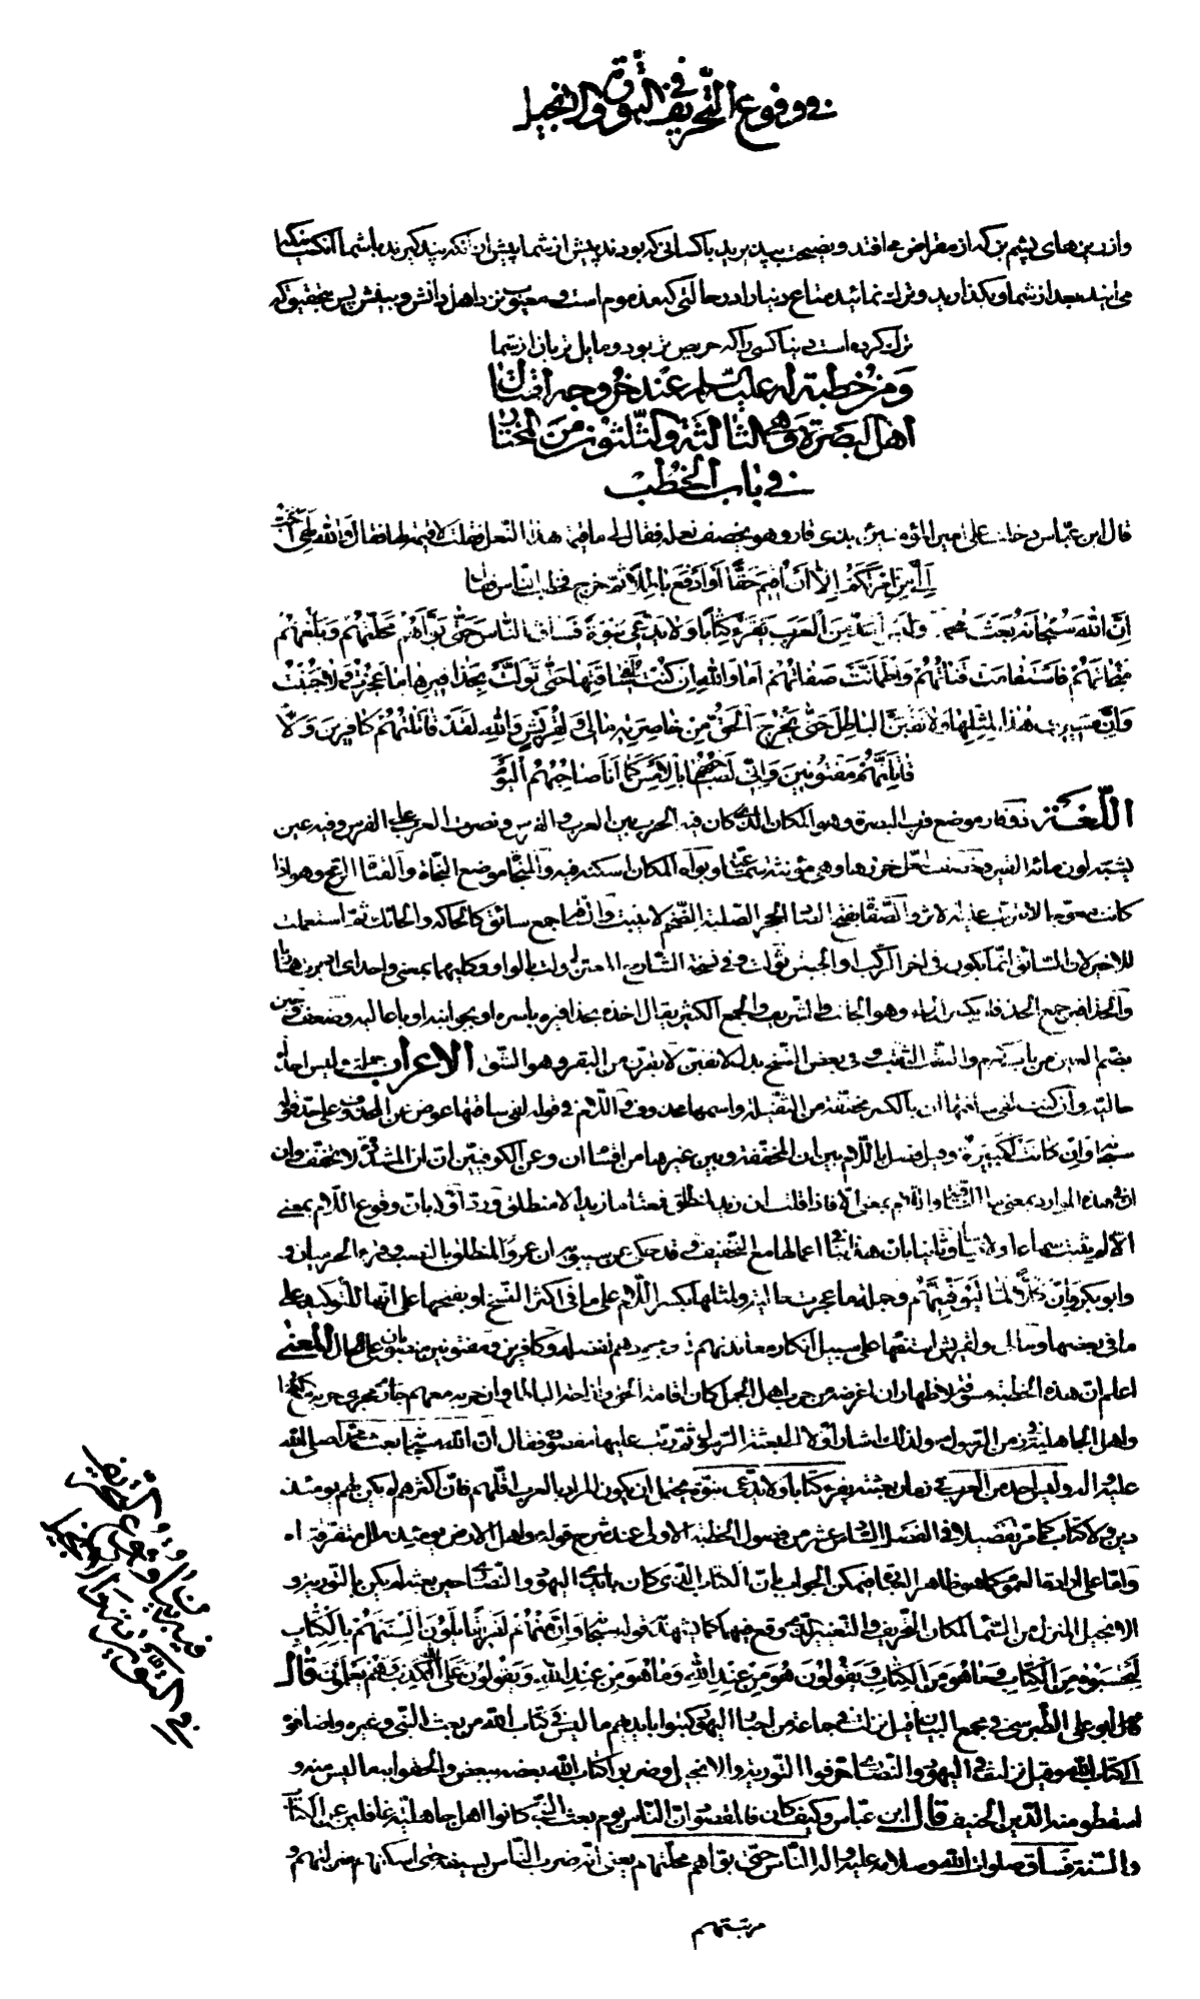 في وقوع التحريف في التورية والانجيل
واز ريزهاى پشم بز كه از مقراض مى افتد و نصيحت بپذيريد باكسانى كه بودند پيش از شما پيش از آنكه پند گيرند با شما آنكسانيكه
مى آيند بعد از شما و بگذاريد و ترك نمائيد متاع دنيا را در حالتى كه مذموم است و معيوب نزد اهل دانش و بينش پس بتحقيق كه
ترك كرده است دنيا كسى را كه حريص تر بود و مايل تر بان از شما
وَمِنْ خُطبةٍ له عليه السّلم عند خُروجه لقتال
اهل البصرة وهي الثالثة والثلثون من المختار
في باب الخُطب
قال ابن عبّاس دخلت على امير المؤمنين بذى قار وهو يخصف نعله فقال لى ما قيمة هذا النّعل فقلت لا قيمة لها فقال والله لهى احبّ
إلىّ من إمرتكم إلّا أن أُقيم حقًّا أو أدفع باطلًا ثمّ خرج فخطب النّاس فقال
إنّ الله سُبحانه بعث محمدا وليس أحد من العرب يقرء كتابًا ولا يدّعى نبوّة فساق النّاس حتّى بوّأهم محلّتهم وبلّغهم
منجاتهم فاستقامت قناتهم واطمأنّت صفاتهم أما والله إن كنت لفى ساقتها حتّى تولّت بحذافيرها ما عجزت ولا جبنت
وإنّ مسيرى هذا لمثلها ولأنقبنّ الباطل حتّى يخرج الحقّ من خاصرته مالى ولقريش والله لقد قاتلتهم كافرين و لا
قاتلنّهم مفتونين وإنّى لصاحبهم بالأمس كما أنا صاحبهم اليوم
اللّغة ذو قار موضع قرب البصرة وهو المكان الّذى كان فيه الحرب بين العرب والفرس ونصرت العرب على الفرس وفيه عين
يشبه لون مائه القير و خصف النعل خرزها وهى مؤنثة سماعيّة وبوّأه المكان اسكنه فيه والمنجاة موضع النّجاة والقناة الرّمح وهو اذا
والحذافير جمع الحذفار وهو الجانب والشّريف والجمع الكثير يقال اخذه بحذافيره باسره او بجوانبه او باعاليه
بضم العين من باب كرم والنّقب الثّقب و فى بعض النّسخ بدله لابقرنّ من البقر وهو الشّق الاعراب جملة وليس احد
حاليّة وان كنت لفى ساقتها ان بالكسر مخفّفة من الثّقيلة واسمها محذوف واللّام فى قوله لفى ساقتها عوض عن المحذوف على حدّ قوله
سبحانه وان كانت لكبيرة وقيل فصل باللّام بين ان المخفّفة وبين غيرها من اقسام ان وعن الكوفيّين انّ ان المشدّدة لا تخفّف وان
ان فى هذه الموارد بمعنى ما النّافية واللّام بمعنى الّا فاذا قلت ان زيد لمنطلق فمعناه ما زيد الّا منطلق وردّ اوّلا بان وقوع اللّام بمعنى
الّا لم يثبت سماعا ولا قياسا وثانيا بانّ هذا ينافى اعمالها مع التّخفيف وقد حكى عن سيبويه ان عمروا لمنطلق بالنصب وقرء الحرميان و
وابوبكر وان كلّا لمّا ليوفّينّهم وجملة ما عجزت حاليّة ولمثلها بكسر اللّام على ما فى اكثر النّسخ او بفتحها على انّها للتّوكيد على
ما فى بعضها ومالى ولقريش استفهام على سبيل الانكار وكافرين ومفتونين منصوبان على الحال المعنى
اعلم انّ هذه الخطبة مسوقة لاظهار ان غرضه من حرب اهل الجمل كان اقامة الحقّ وازاحة الباطل وان حربه معهم جار مجرى حربه مع الكفّار
واهل الجاهليّة فى زمن الرّسول ولذلك اشار اوّلا الى بعثة الرّسول ثمّ رتّب عليها مقصوده فقال انّ الله سبحانه بعث محمّدا صلى الله
عليه واله وليس احد من العرب فى زمان بعثته يقرء كتابا ولا يدّعى نبوّة يحتمل ان يكون المراد بالعرب اقلّهم فانّ اكثرهم لم يكن لهم يومئذ
دين ولا كتاب كما مرّ تفصيلا فى الفصل السّادس عشر من فصول الخطبة الاولى عند شرح قوله واهل الارض يومئذ ملل متفرّقة اه
وامّا على ارادة العموم كما هو ظاهر اللفظ فيمكن الجواب بانّ الكتاب الّذى كان بايدى اليهود والنّصارى حين بعثه لم يكن بالتورية و
الانجيل المنزل من السّماء لمكان التّحريف والتّغيير الّذى وقع فيهما كما يشهد به قوله سبحانه وَإنّ مِنْهُم لَفَريقًا يَلْوُونَ أَلْسِنَتَهُمْ بِالْكِتابِ
لِتَحْسَبُوهُ مِنَ الْكِتابِ وَما هُوَ مِنَ الْكِتابِ وَيَقُولُونَ هُوَ مِنْ عِنْدِ اللهِ وَما هُوَ مِنْ عِنْدِ اللهِ وَيَقُولُونَ عَلَى اللهِ الْكَذِبَ وَهُمْ يَعْلَمُونَ قال
ابو على الطّبرسى فى مجمع البيان قيل نزلت فى جماعة من احبار اليهود كتبوا بايديهم ما ليس فى كتاب الله من بعث النّبى وغيره واضافوه
الى كتاب الله وقيل نزلت فى اليهود والنّصارى حرّفوا التّورية والانجيل وضربوا كتاب الله بعضه ببعض والحقوا به ما ليس منه و
اسقطوا منه الدّين الحنيف قال ابن عبّاس وكيف كان فالمقصود انّ النّاس يوم بعث النّبى كانوا اهل جاهليّة غافلين عن الكتاب
والسّنّة فساق صلوات الله وسلامه عليه واله النّاس حتّى بوّاهم محلّتهم يعنى انّه ضرب النّاس بسيفه حتّى اسكنهم منزلتهم و
مرتبتهم